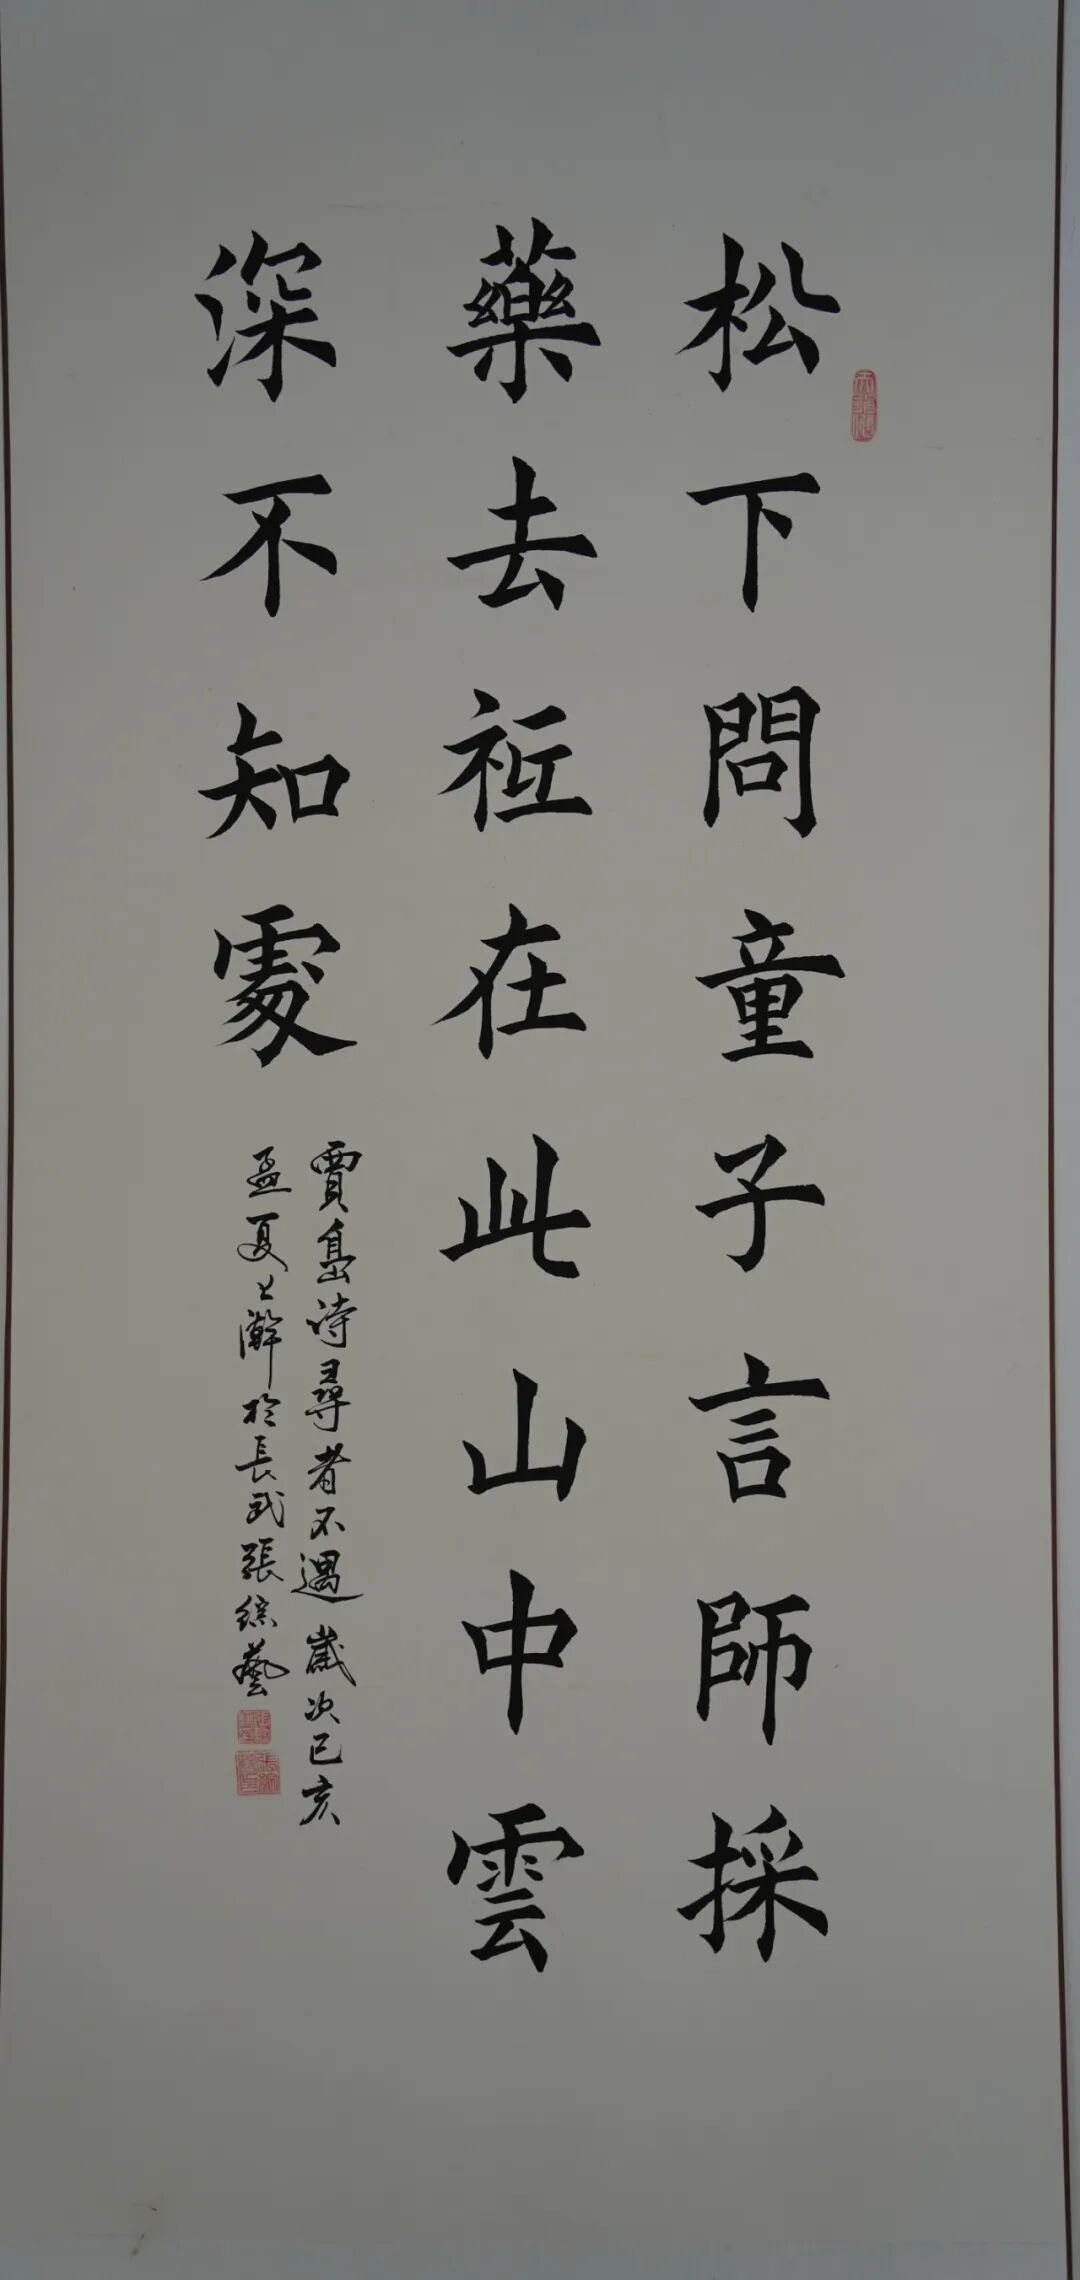 松下問童子言師採
藥去祗在此山中雲
深不知處
賈島诗尋者不遇歲次己亥
孟夏上澣於長武張綜藝